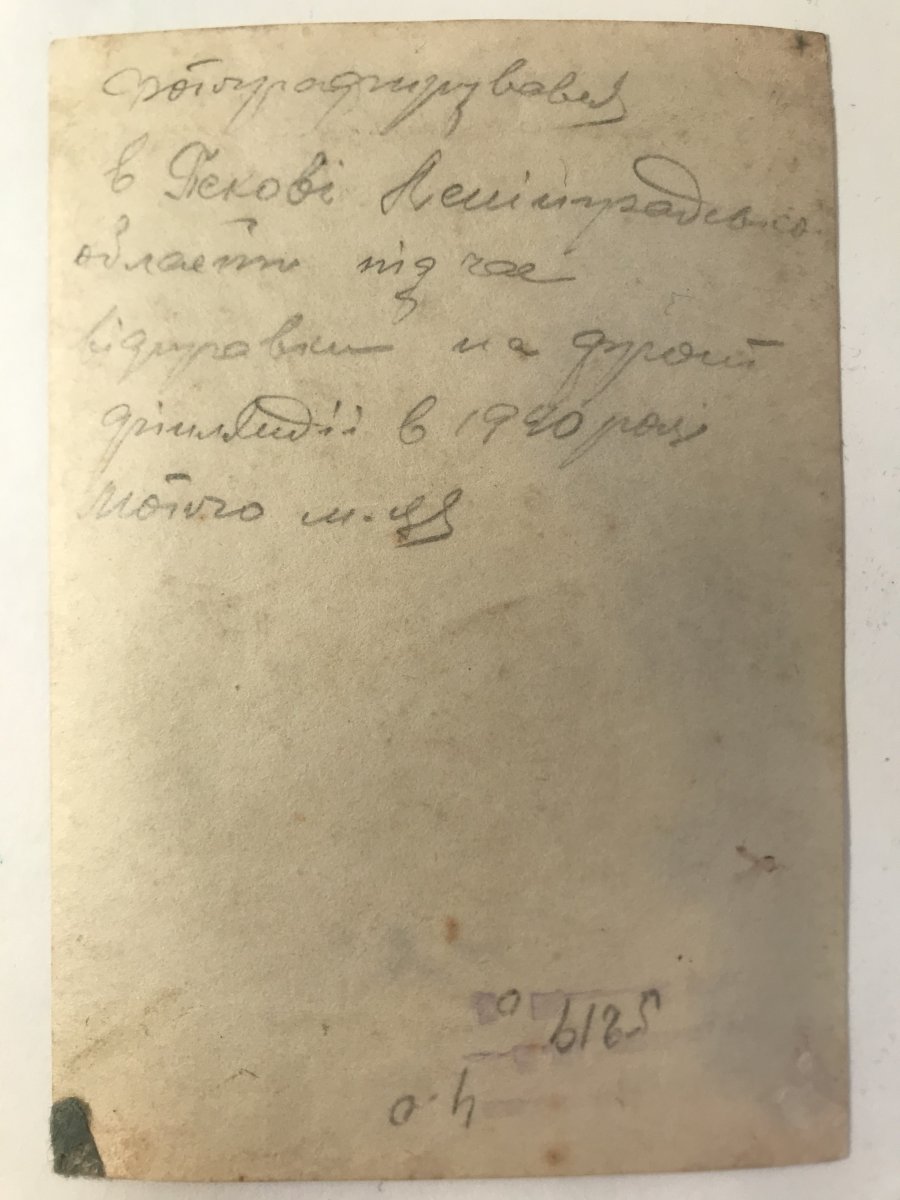 фотографирувався
в Пскові Ленінградсько
області під час
відправки на фронт
фінляндії в 1940 році
лютого м-ця